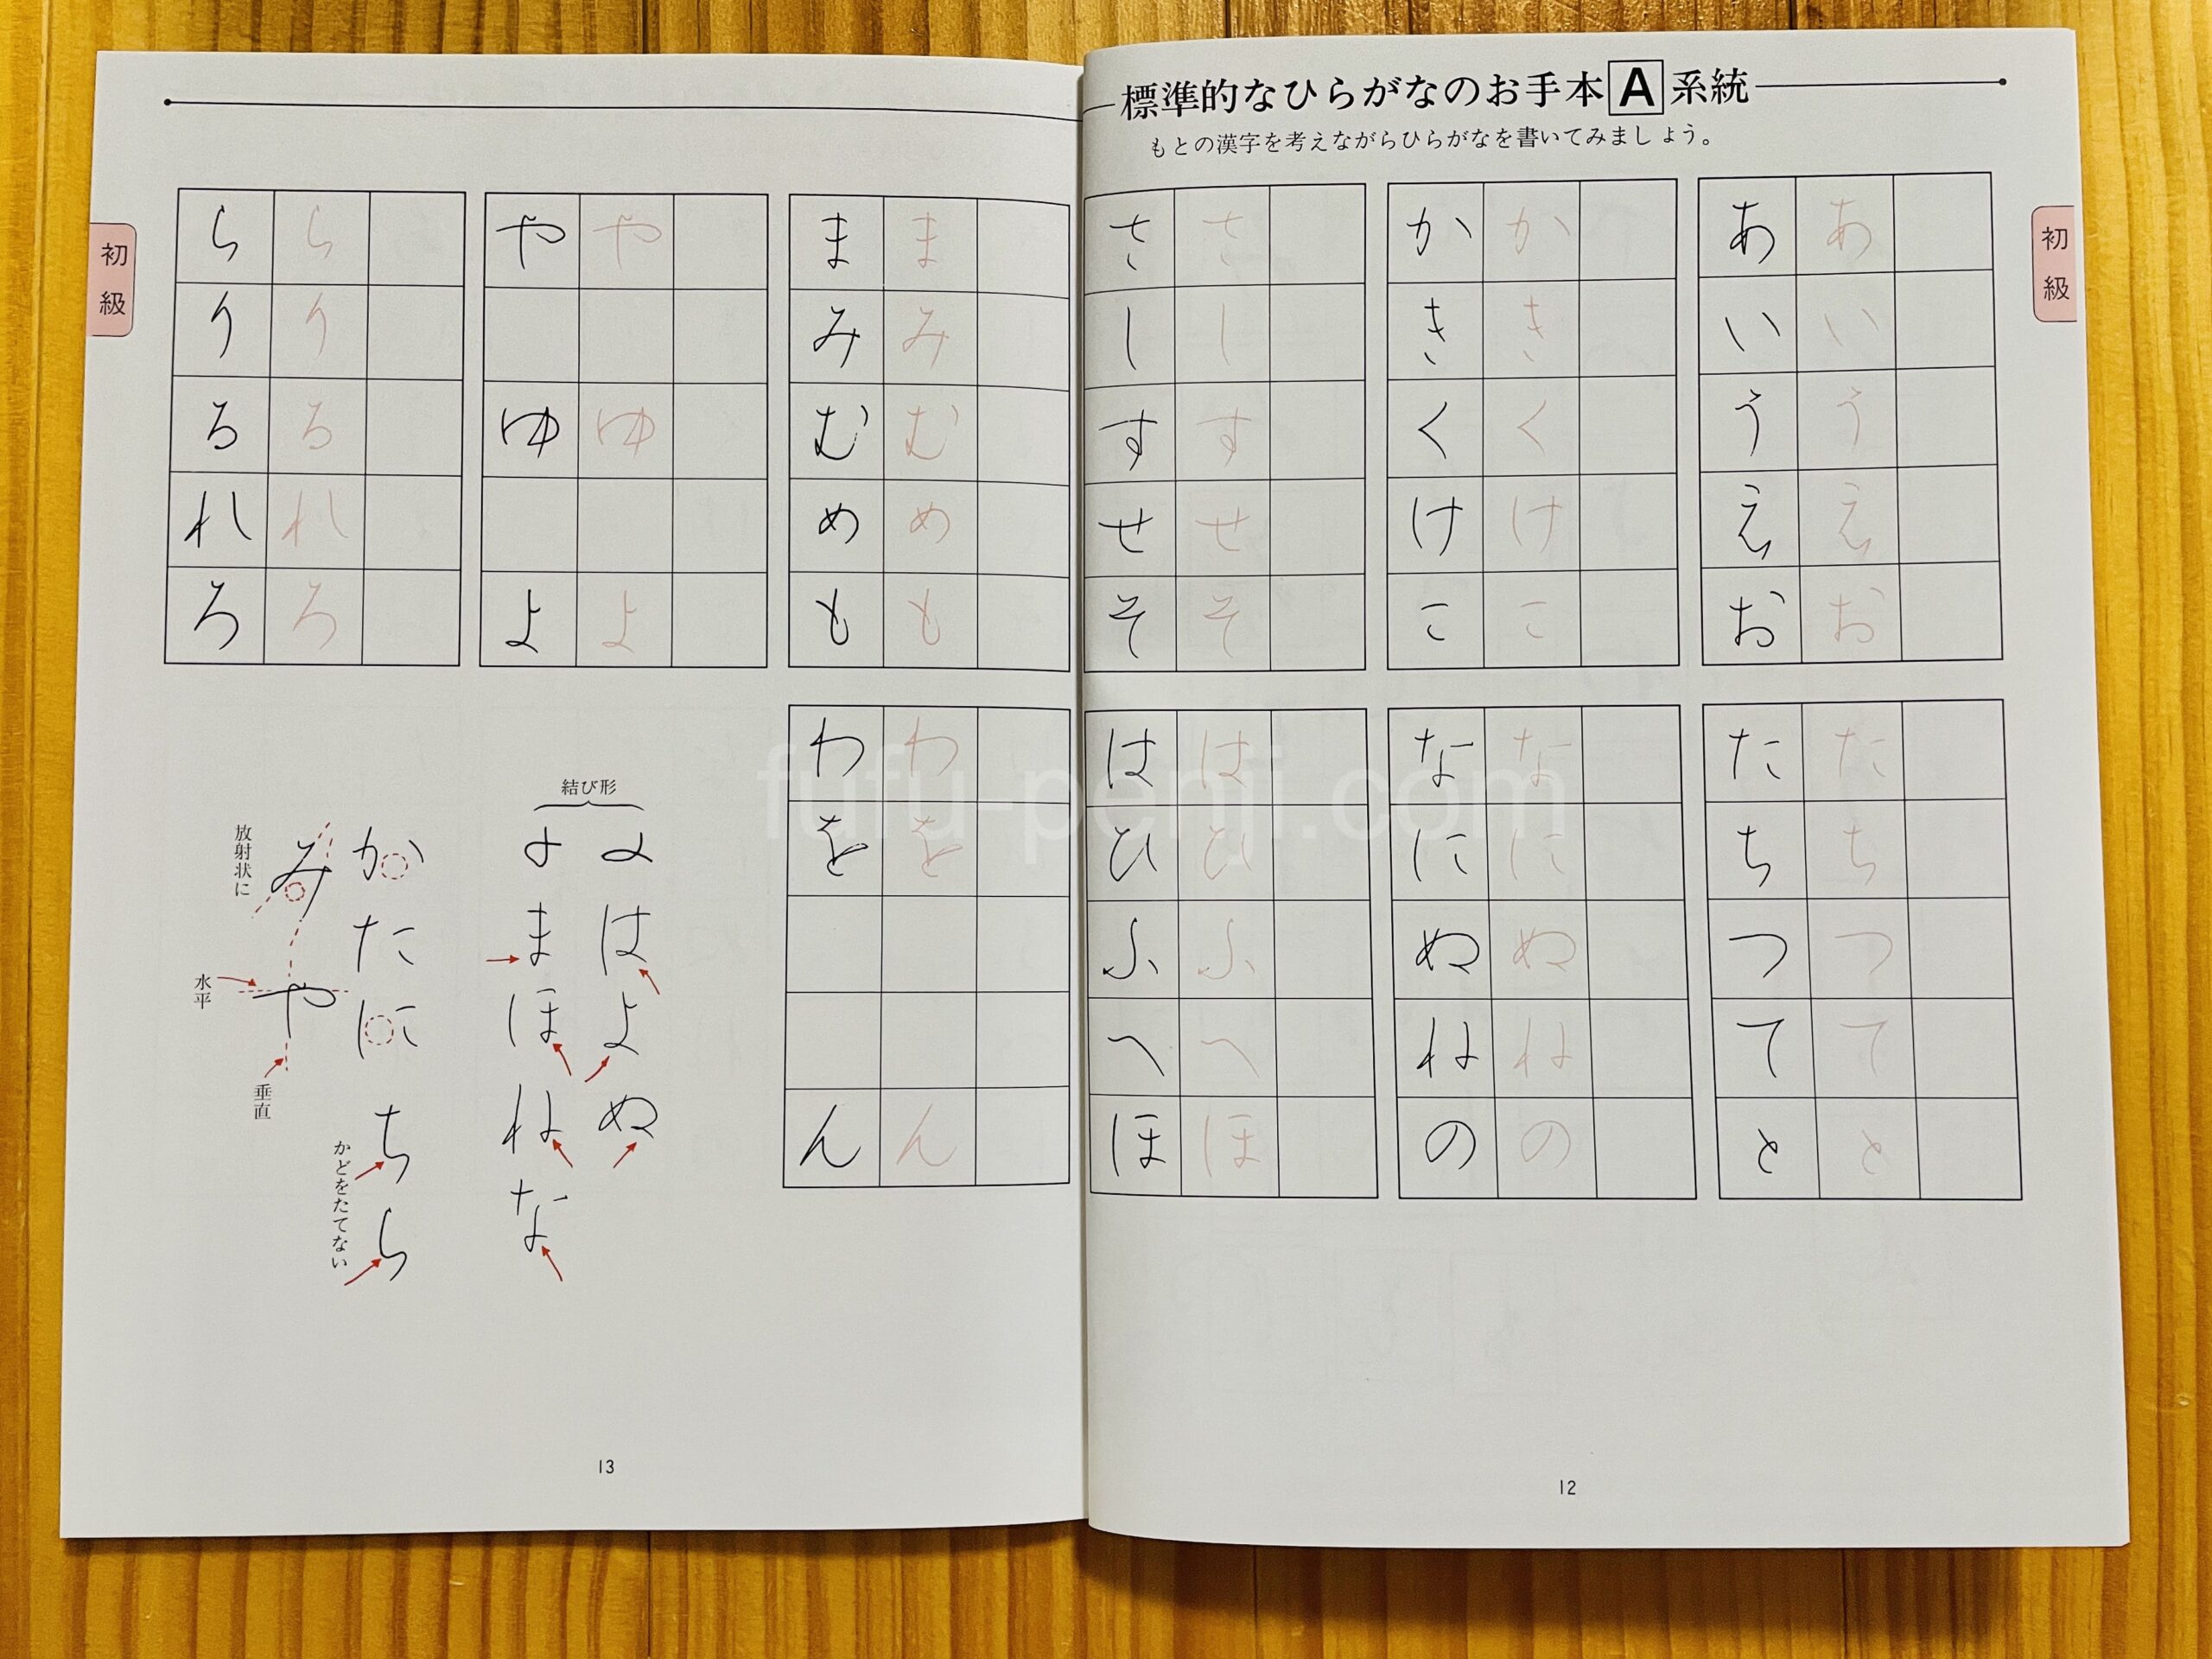 標準的なひらがなのお手本 A 系統
もとの漢字を考えながらひらがなを書いてみましょう。
初級
あ あ
い い
う う
え え
お お
か か
き き
く く
け け
こ こ
さ さ
し し
す す
せ せ
そ そ
た た
ち ち
つ つ
て て
と と
な な
に に
ぬ ぬ
ね ね
の の
は は
ひ ひ
ふ ふ
へ へ
ほ ほ
12
初級
ま ま
み み
む む
め め
も も
や や
ゆ ゆ
よ よ
ら ら
り り
る る
れ れ
ろ ろ
わ わ
を を
ん ん
結び形
はよぬ
まほねな
かたにちら
かどをたてない
みや
放射状に
水平
垂直
13
fufu-penji.com